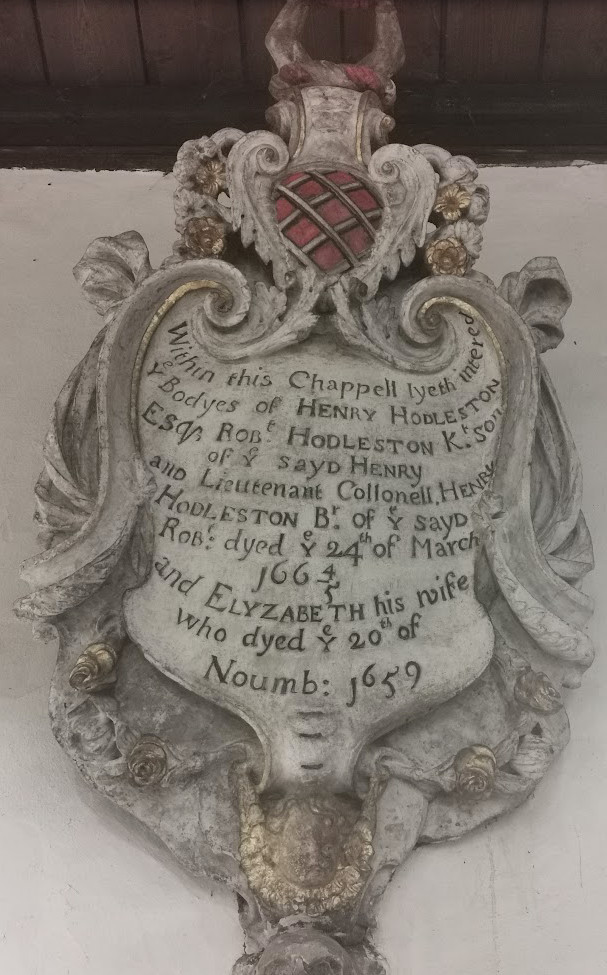 Within this Chappell lyeth intered
yͤ Bodyes of HENRY HODLESTON
ESqʳ, ROBᵗ HODLESTON Kᵗ. Son
of yͤ SAYD HENRY
and Lieutenant Collonell, HENRY
HODLESTON Bʳ. of yͤ SAYD
ROBᵗ: dyed yͤ 24ᵗʰ of March
166 4/5
and ELYZABETH his wife
who dyed yͤ 20ᵗʰ of
Noumb: 1659